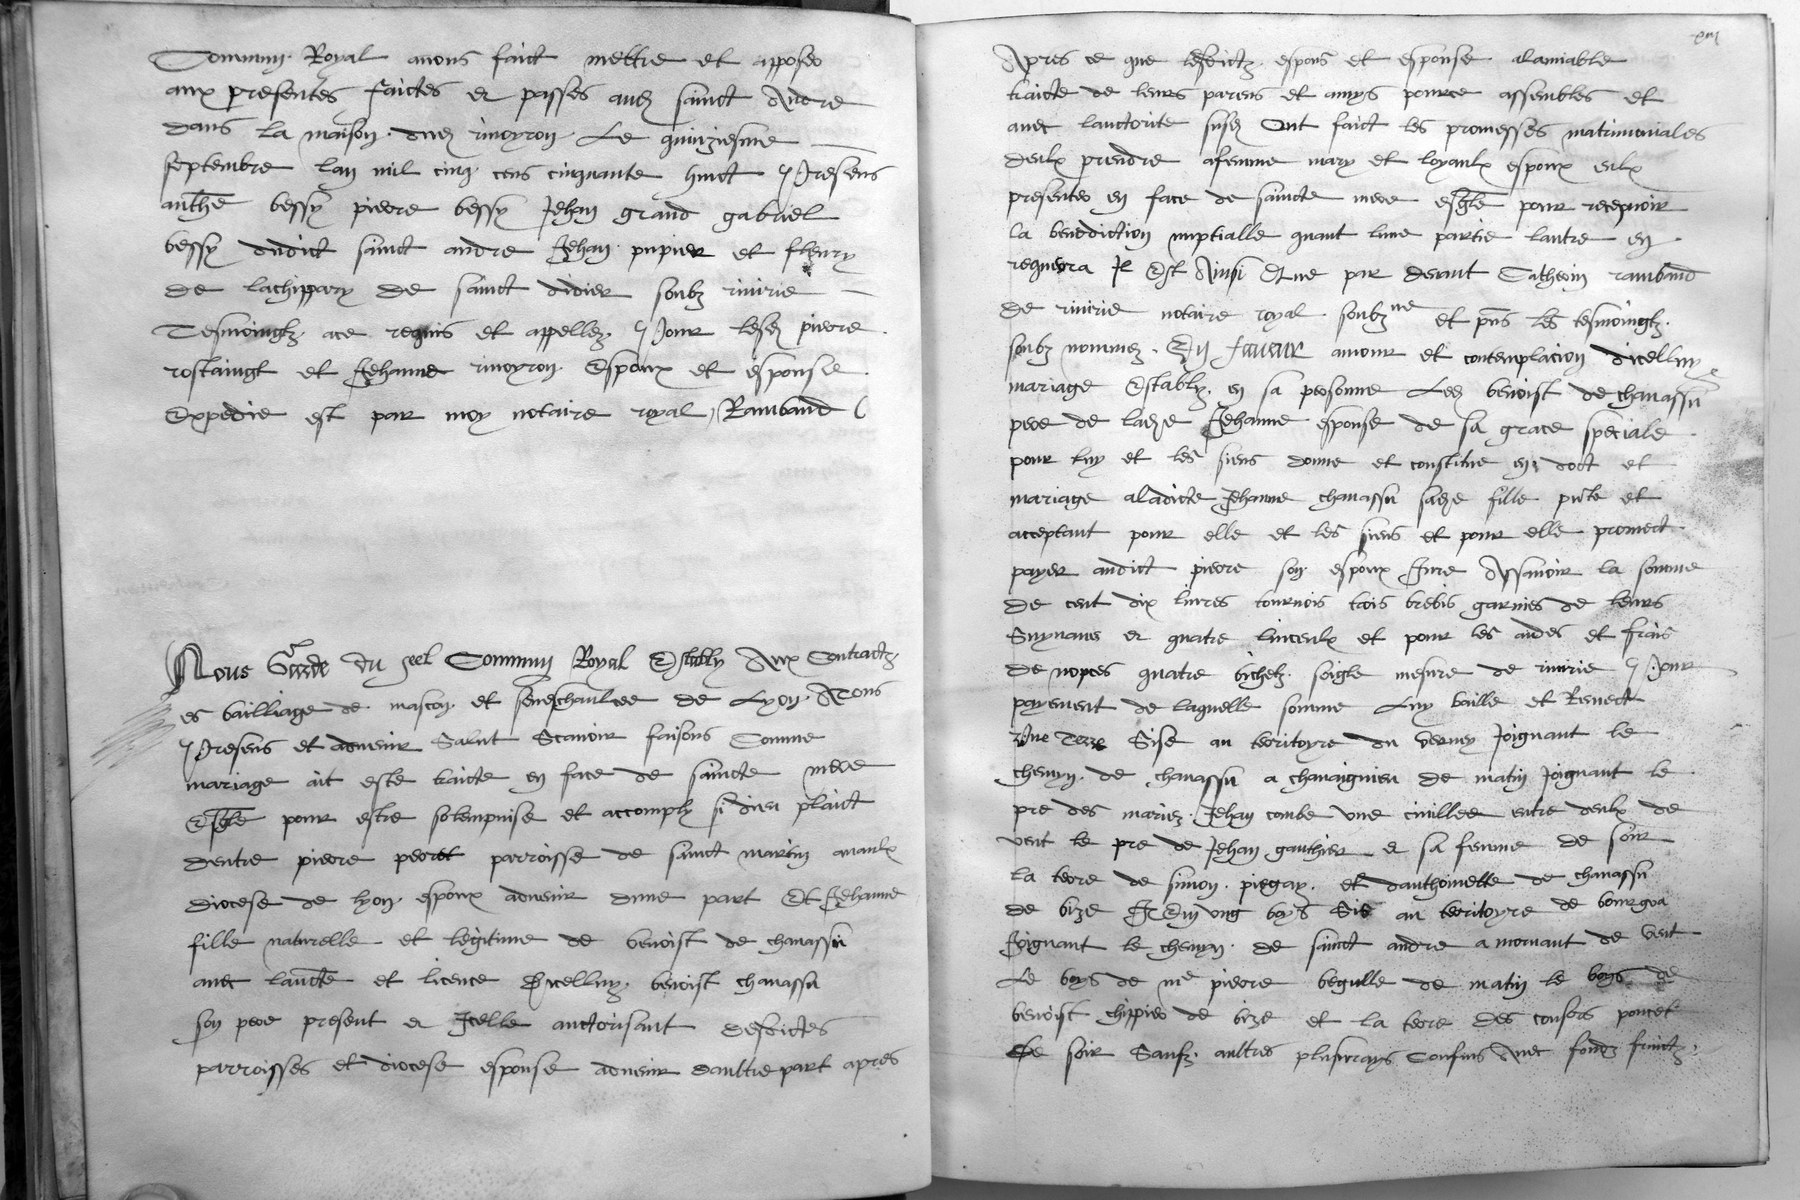 Commun Royal avons faict mettre et apposer
aux presentes faictes et passes aud sainct Andre
dans la maison dud rinoyron Le quinziesme
septembre lan mil cinq cens cinquante huict Presens
anthe bessy pierre bessy Jehan grand gabriel
bessy dudict sainct andre Jehan pupier et fleury
de lachippary de sainct didier soubz riverie
Tesmoingtz ace requis et appellez Pour lesd pierre
rostaingt et Jehanne rinoyron Espoux et esponse
Expedie est par moy notaire royal Rambaud
Nous Garde du seel Commun Royal Estably Aux Contractz
es bailliage de mascon et seneschaulcee de Lyon A Tous
Presens et advenir Salut Scavoir faisons Comme
mariage ait este traicte en face de saincte mere
Esgle pour estre solempnise et accomply si dieu plaict
dentre pierre peoret parroisse de sainct martin avaulx
diocese de lyon espoux advenir dune part Et Jehanne
fille naturelle et legitime de benoist de chavassu
avec laucte et licence dicelluy benoist chavassu
son pere present et Icelle auctorisant desdictes
parroisses et diocese esponse advenir daultre part apres
Apres ce que lesdictz espous et esponse alamiable
traicte de leurs parens et amys pource assembles et
avec lauctorite susd Ont faict les promesses matrimoniales
deulx prendre afemme mary et loyaulx espoux eulx
presenter en face de saincte mere esgle pour recepvoir
la benediction nuptialle quant lune partie lautre en
requerra Il Est Ainsi Que par devant Catherin rambaud
de riverie notaire royal soubzne et pns les tesmoingtz
soubz nommez En faveur amour et contemplacion dicelluy
mariage Estably en sa personne Led benoist de chavassu
pere de lade Jehanne esponse de sa grace speciale
pour luy et les siens donne et constitue en doct et
mariage aladicte Jehanne chavassu sade fille pnte et
acceptant pour elle et les siens et pour elle promect
payer audict pierre son espoux fure Assavoir la somme
de cent dix livres tournois trois brebis garnies de leurs
Suyvans et quatre linceulx et pour les aides et frais
de nopces quatre bichetz seigle mesure de riverie Pour
payement de laquelle somme Luy baille et Remect
Une Terre Sise au territoyre du verney Joignant le
chemyn de chavassu a chavaignieu de matin Joignant le
pre des mariez Jehan combe une civillee entre deulx de
vent le pre de Jehan gauthier et sa femme de soir
la terre de simon piegay et danthoinette de chavassu
de bize Item ung boys Sis au territoyre de bourgoa
Joignant le chemyn de sainct andre a mornant de vent
Le boys de me pierre begulle de matin le boys de
benoist chippier de bize et la terre des consors poncet
De soir Saufz aultres plusvrays Confins Avec fondz fruictz